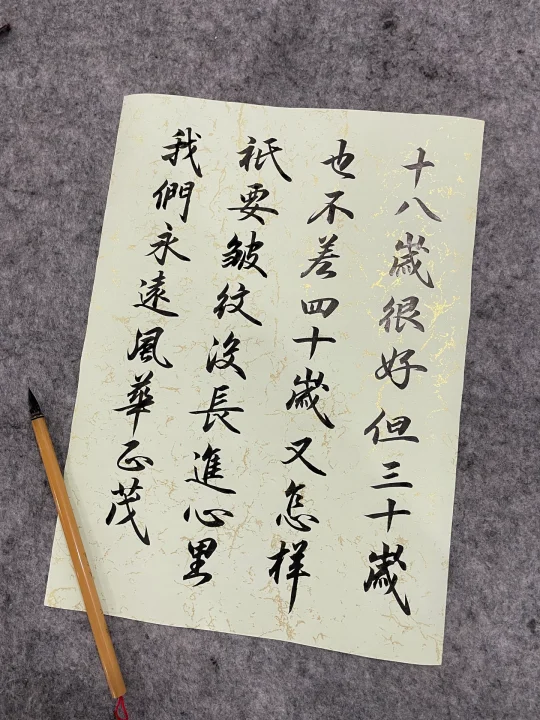 十八歲很好但三十歲
也不差四十歲又怎样
祇要皱纹没長進心里
我們永遠風華正茂